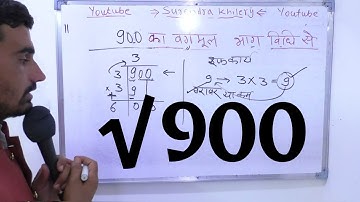 Youtube ⇒ Surendra khilery ⇐ Youtube
॥
900 का वर्गमूल भाग विधि से
3
3 900 ←
इकाई
× 3 9
9 ⇒ 3×3=9
बराबर या कम
6 0
√900